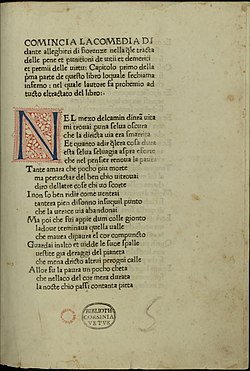 COMINCIA LA COMEDIA DI
dante alleghieri di fiorenze nella q̄le tracta
delle pene et punitioni de uitii et demeriti
et premii delle uirtu: Capitolo primo della
p̄ma parte de questo libro loquale sechiama
inferno : nel quale lautore fa prohemio ad
tucto eltractato del libro:.
NEL mezo delcamin dinr̄a uita
mi trouai puna selua oscura
che la diricta uia era smarrita
Et quanto adir q̄lera cosa dura
esta selua seluagia aspra eforte
che nel pensier renoua la paura
Tante amara che pocho piu morte
ma pertractar del ben chio uitrouai
diro dellaltre cose chi uo scorte
I non so ben ridir come uentrai
tantera pien disonno insuquil punto
che la uerace uia abandonai
Ma poi che fui appie dum colle gionto
ladoue terminaua quella ualle
che mauea dipaura el cor compuncto
Guardai inalto et uidde le suoe spalle
uestite gia deraggi del pianeta
che mena dricto altrui perogni calle
Allor fu la paura un pocho cheta
che nellaco del cor mera durata
la nocte chio passai contanta pieta
BIBLIOTH
CORSINIA
VETVS